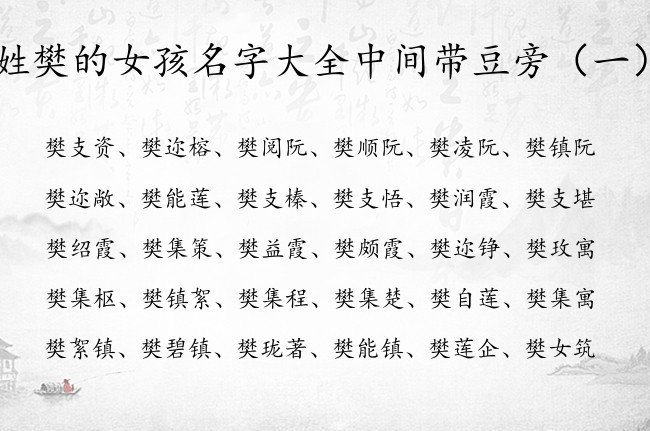 姓樊的女孩名字大全中间带豆旁（一）
樊支资、樊迩榕、樊阅阮、樊顺阮、樊凌阮、樊镇阮
樊迩敞、樊能莲、樊支榛、樊支悟、樊润霞、樊支堪
樊绍霞、樊集策、樊益霞、樊颇霞、樊迩铮、樊玫寓
樊集枢、樊镇絮、樊集程、樊集楚、樊自莲、樊集寓
樊絮镇、樊碧镇、樊珑著、樊能镇、樊莲企、樊女筑